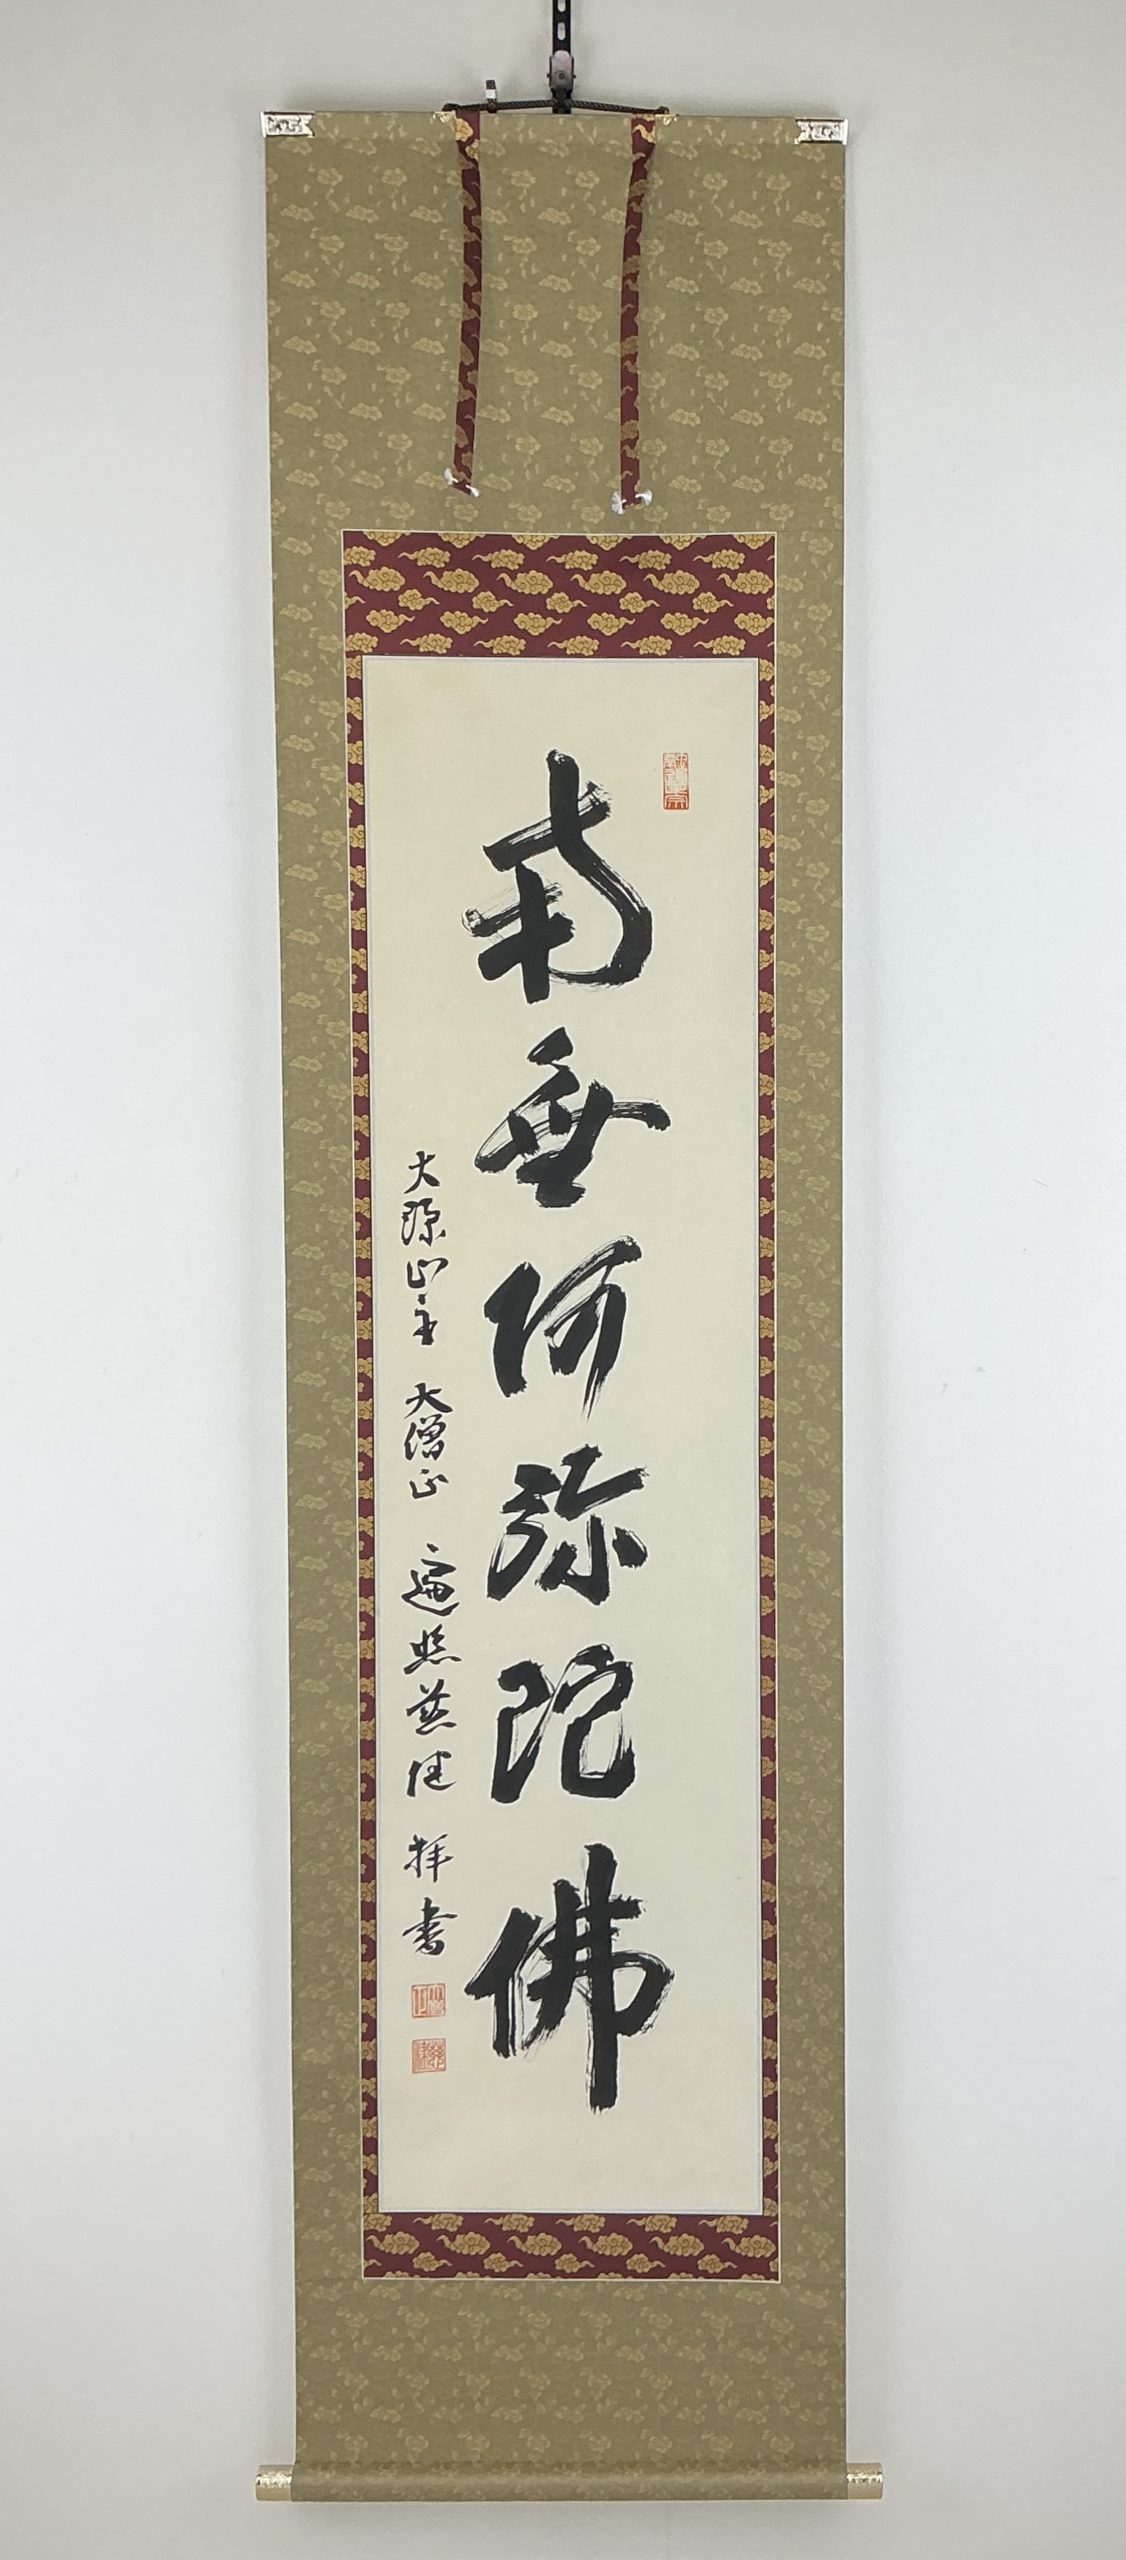 南無阿彌陀佛
大源山主 大僧正 遍照慈健 拝書